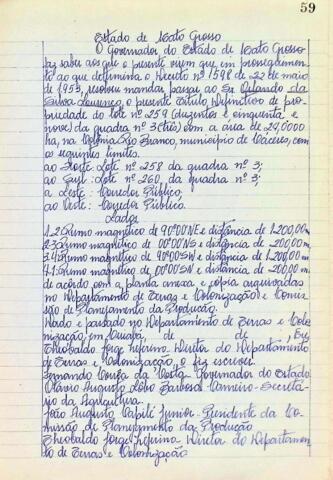 59
Estado de Mato Grosso
O Governador do Estado de Mato Grosso
faz saber aos que o presente virem que em prosseguimen-
to ao que determina o Decreto nº 1598 de 22 de maio
de 1953, resolveu mandar passar ao Sr. Orlando da
Silva Lourenço, o presente Título Definitivo de pro-
priedade do lote nº 259 (duzentos e cinquenta e
nove) da quadra nº 3 (três) com a área de 24,0000
ha, na Colônia Rio Branco, município de Cáceres, com
os seguintes limites.
ao Norte: Lote nº 258 da quadra nº 3;
ao Sul: Lote nº 260, da quadra nº 3;
a Leste: Corredor Público,
ao Oeste: Corredor Público.
Lados
1.2: Rumo magnético de 90º00'NE e distância de 1.200,00m.
2.3: Rumo magnético de 00º00' e distância de 200,00m.
3.4: Rumo magnético de 90º00'SW e distância de 1.200,00m
4.1: Rumo magnético de 00º00' e distância de 200,00 m.
de acordo com a planta anexa e cópia arquivadas
no Departamento de Terras e Colonização e Comis-
são de Planejamento da Produção.
Dado e passado no Departamento de Terras e Colo-
nização, em Cuiabá, de de , Eu
Theobaldo Jorge Diretor do Departamento
de Terras e Colonização, o fiz escrever
Fernando Corrêa da Costa Governador do Estado
Otávio Augusto Lobo Barbosa Carneiro - Secretá-
rio da Agricultura
João Augusto Capilé Junior - Presidente da Co-
missão de Planejamento da Produção
Theobaldo Jorge Diretor do Departamen-
to de Terras e Colonização